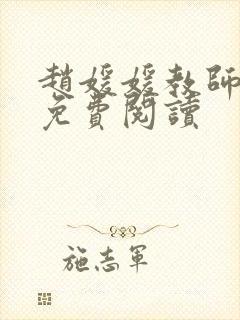 趙媛媛教師
免費閱讀
施志軍